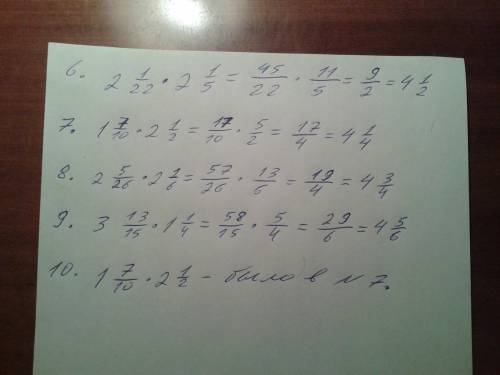 6. 2 1/22 · 2 1/5 = 45/22 · 11/5 = 9/2 = 4 1/2
7. 1 7/10 · 2 1/2 = 17/10 · 5/2 = 17/4 = 4 1/4
8. 2 5/26 · 2 1/6 = 57/26 · 13/6 = 19/4 = 4 3/4
9. 3 13/15 · 1 1/4 = 58/15 · 5/4 = 29/6 = 4 5/6
10. 1 7/10 · 2 1/2 - было в N 7.